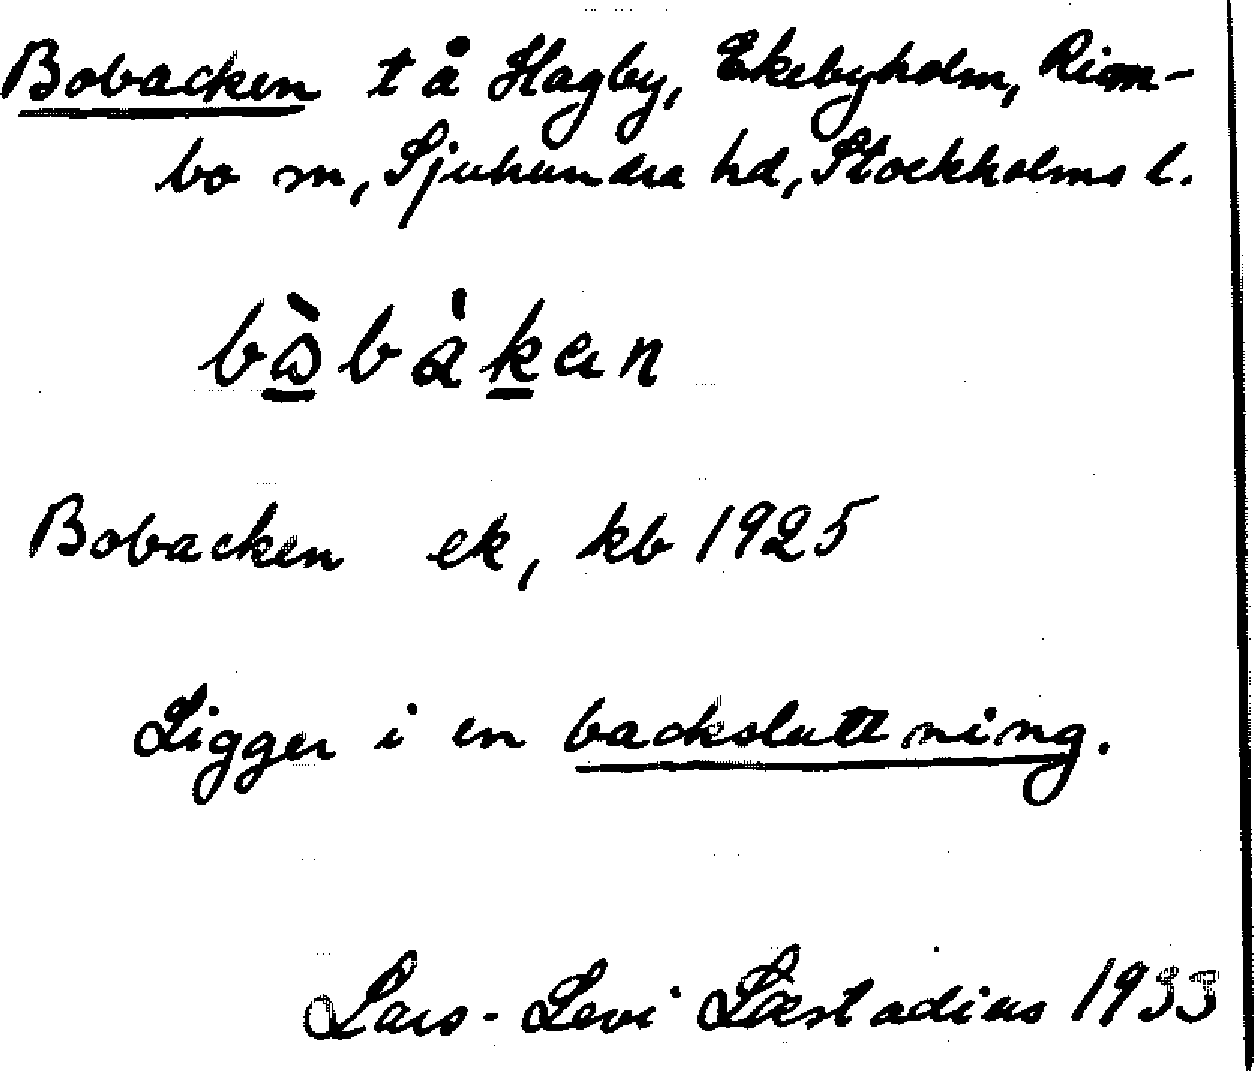 Bobacken t å Hagby, Ekebyholm, Rim-
bo sn, Sjuhundra hd, Stockholms l.
Bobacken ek, kb 1925
Ligger i en backsluttning.
Lars-Levi Læstadius 1933